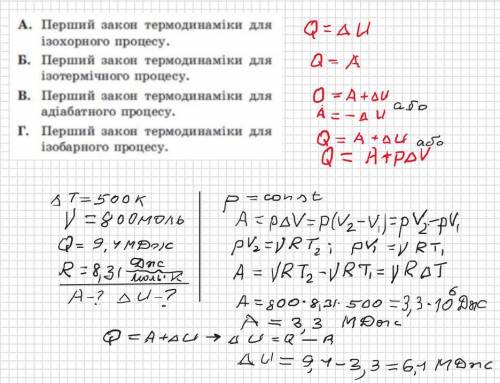 А. Перший закон термодинаміки для
ізохорного процесу.
Б. Перший закон термодинаміки для
ізотермічного процесу.
В. Перший закон термодинаміки для
адіабатного процесу.
Г. Перший закон термодинаміки для
ізобарного процесу.
Q = ΔU
Q = A
O = A + ΔU
A = -ΔU або
Q = A + ΔU або
Q = A + pΔV
ΔT = 500 К
V = 800 моль
Q = 9,4 МДж
R = 8,31 Дж/моль·К
A-? ΔU-?
p = const
A = pΔV = p(V₂-V₁) = pV₂-pV₁
pV₂ = VRT₂; pV₁ = VRT₁
A = VRT₂-VRT₁ = VRΔT
A = 800·8,31·500 = 3,3·10⁶ Дж
A = 3,3 МДж
Q = A + ΔU → ΔU = Q - A
ΔU = 9,4-3,3 = 6,1 МДж